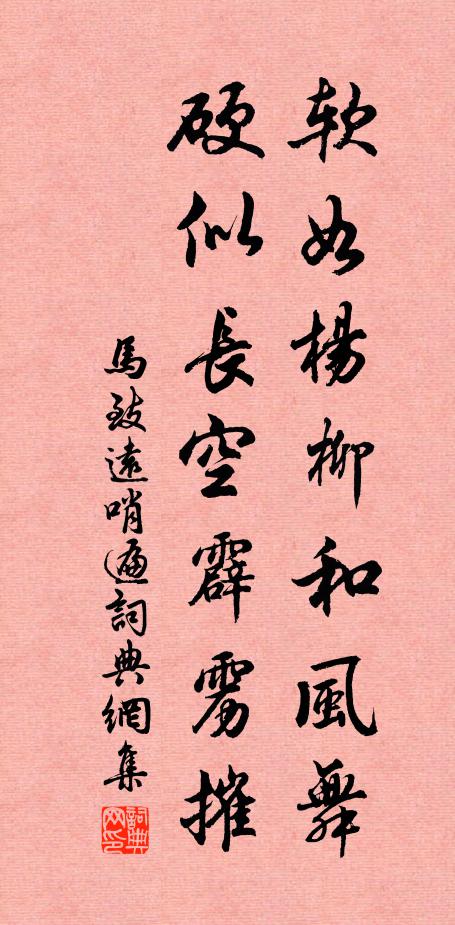 軟如楊柳和風舞
硬似長空霹雳摧
馬致遠哨遍詞典網集
詞典网印